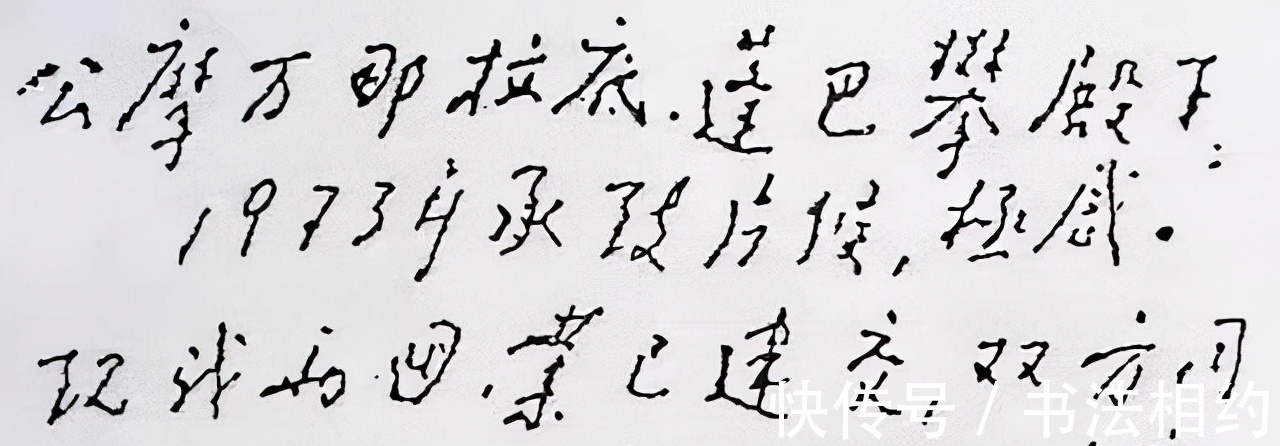 公摩万那拉底.蓬巴攀殿下:
1973年承致片候,极感.
现我两国.业已建交,双方同
快传号/书法相约